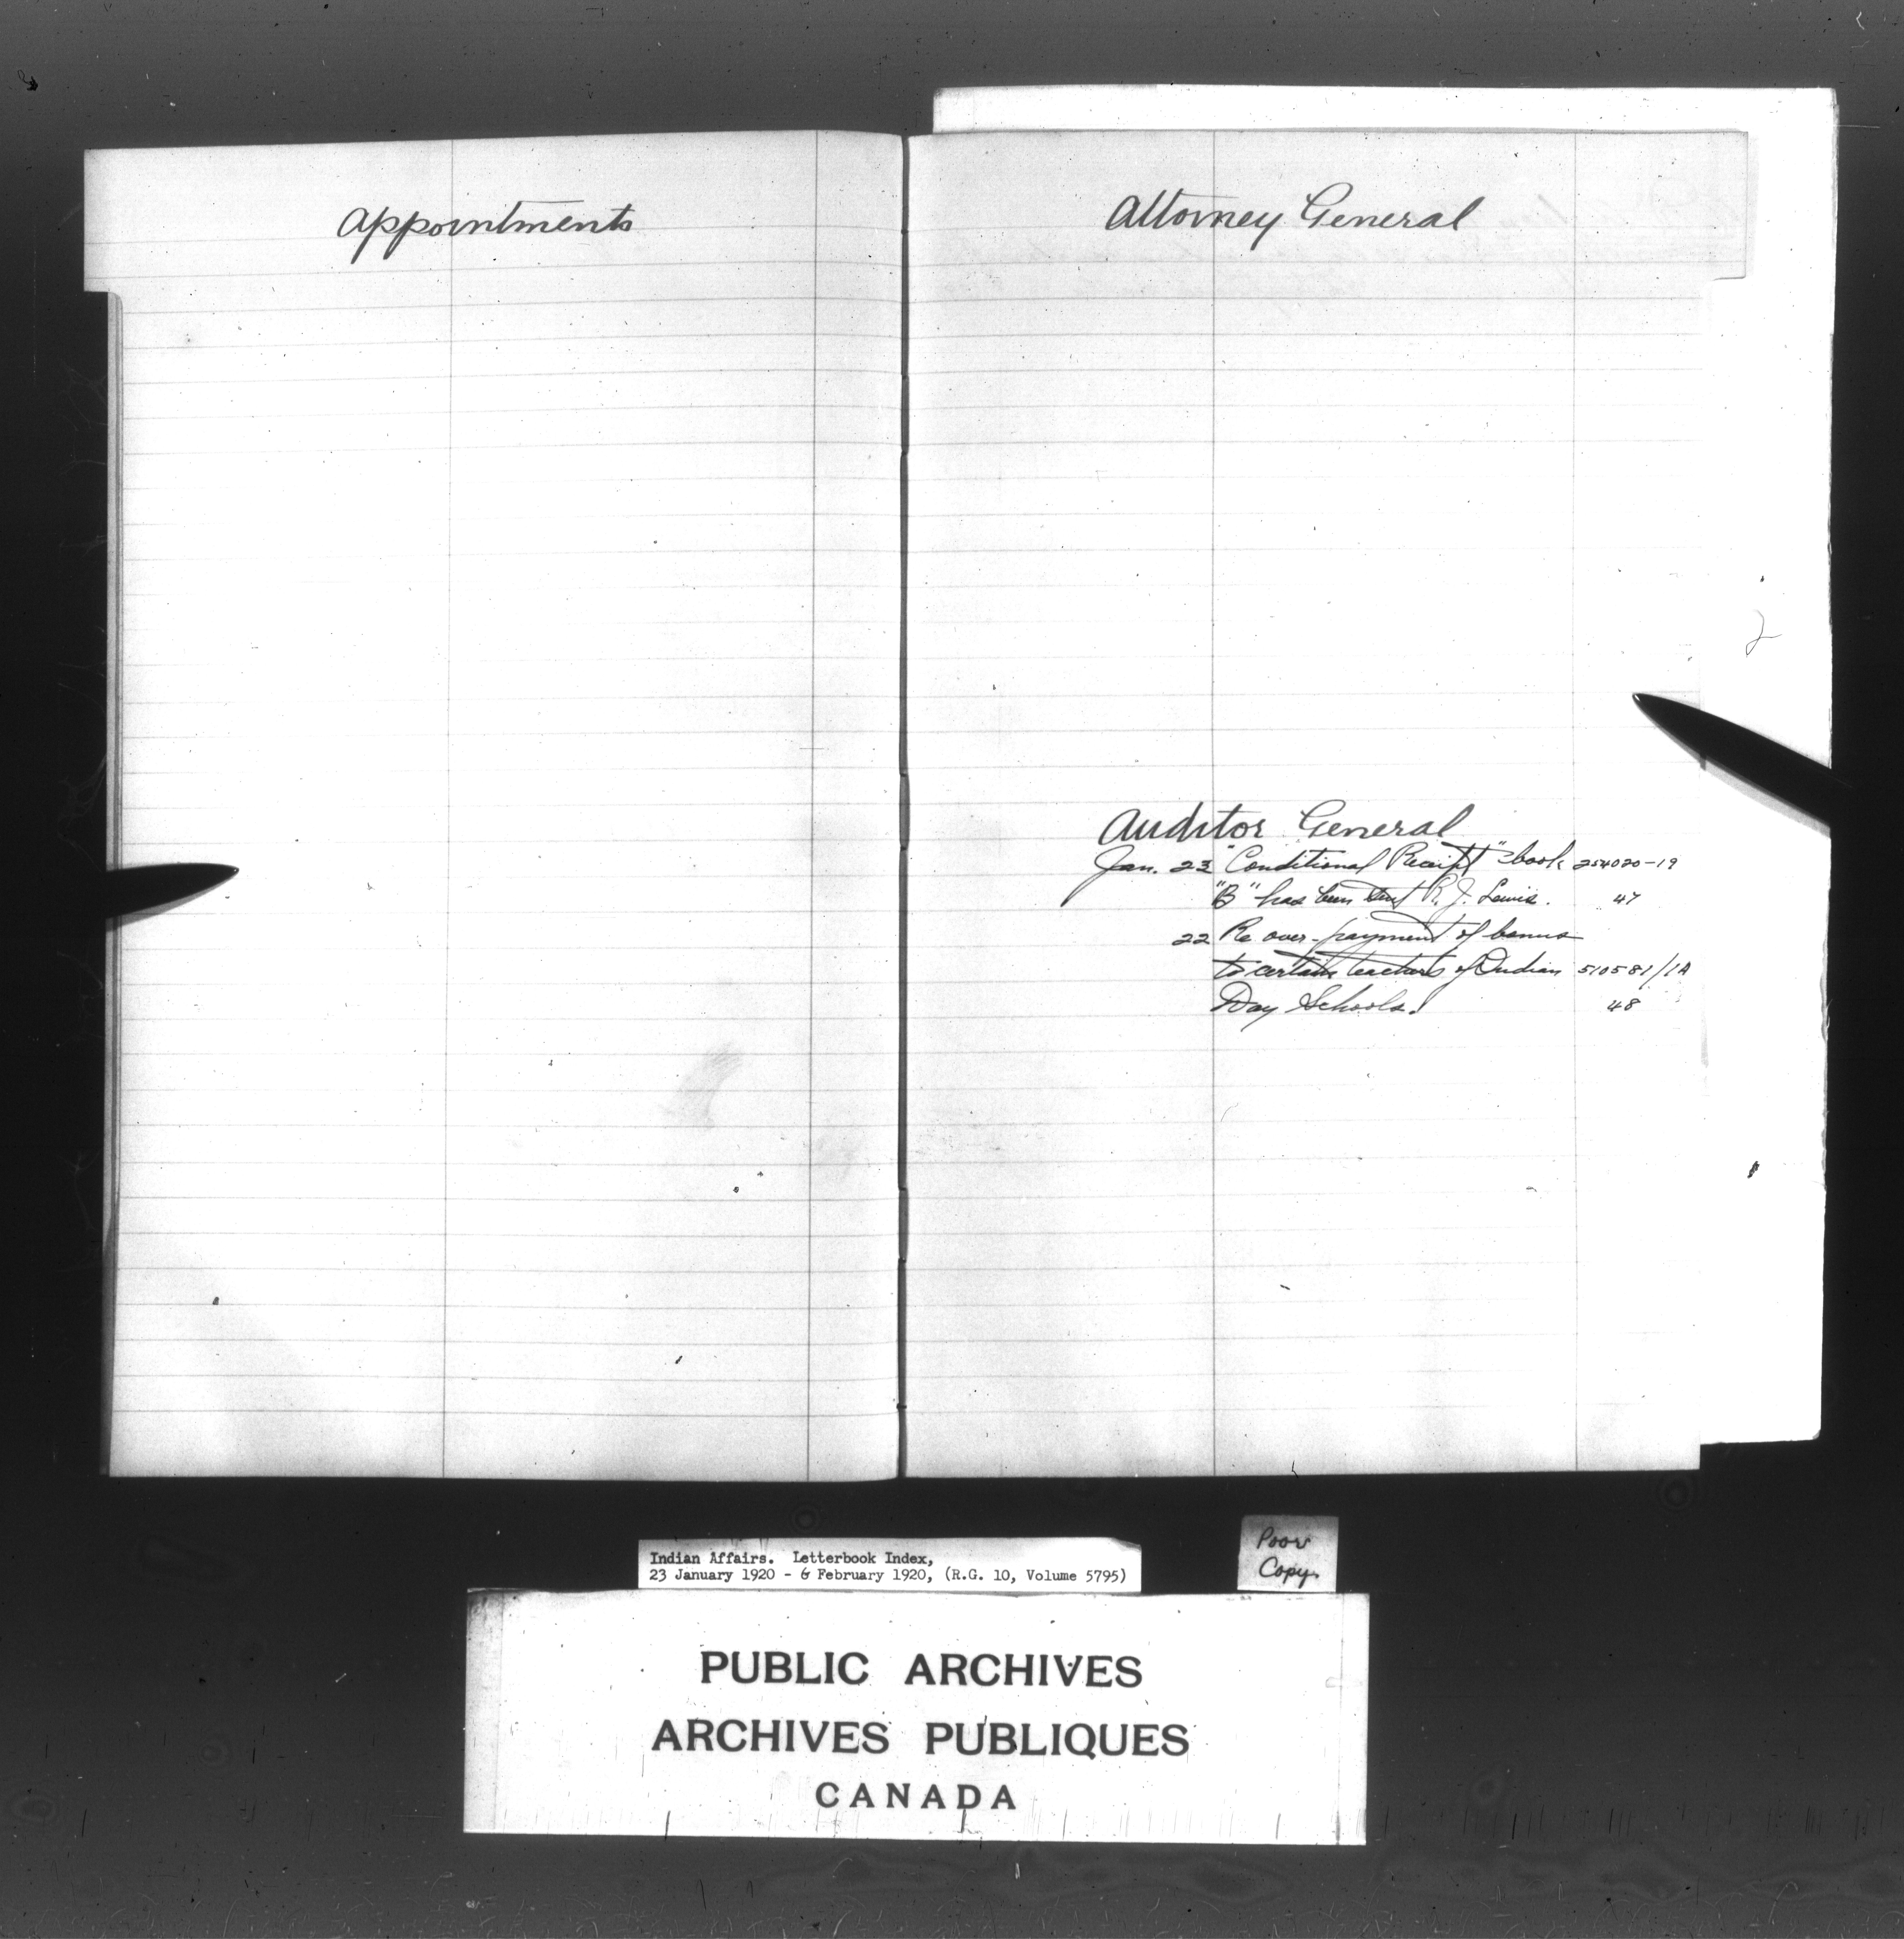 Appointments
Attorney General
Auditor General
Jan. 23 "Conditional Receipt" book 254020-19
"B" has been sent R. J. Lewis. 47
22 Re over-payment of bonus
to certain teachers of Indian 510581/1A
Day Schools. 48
2
Indian Affairs. Letterbook Index,
23 January 1920 - 6 February 1920, (R.G. 10, Volume 5795)
Poor
Copy.
PUBLIC ARCHIVES
ARCHIVES PUBLIQUES
CANADA